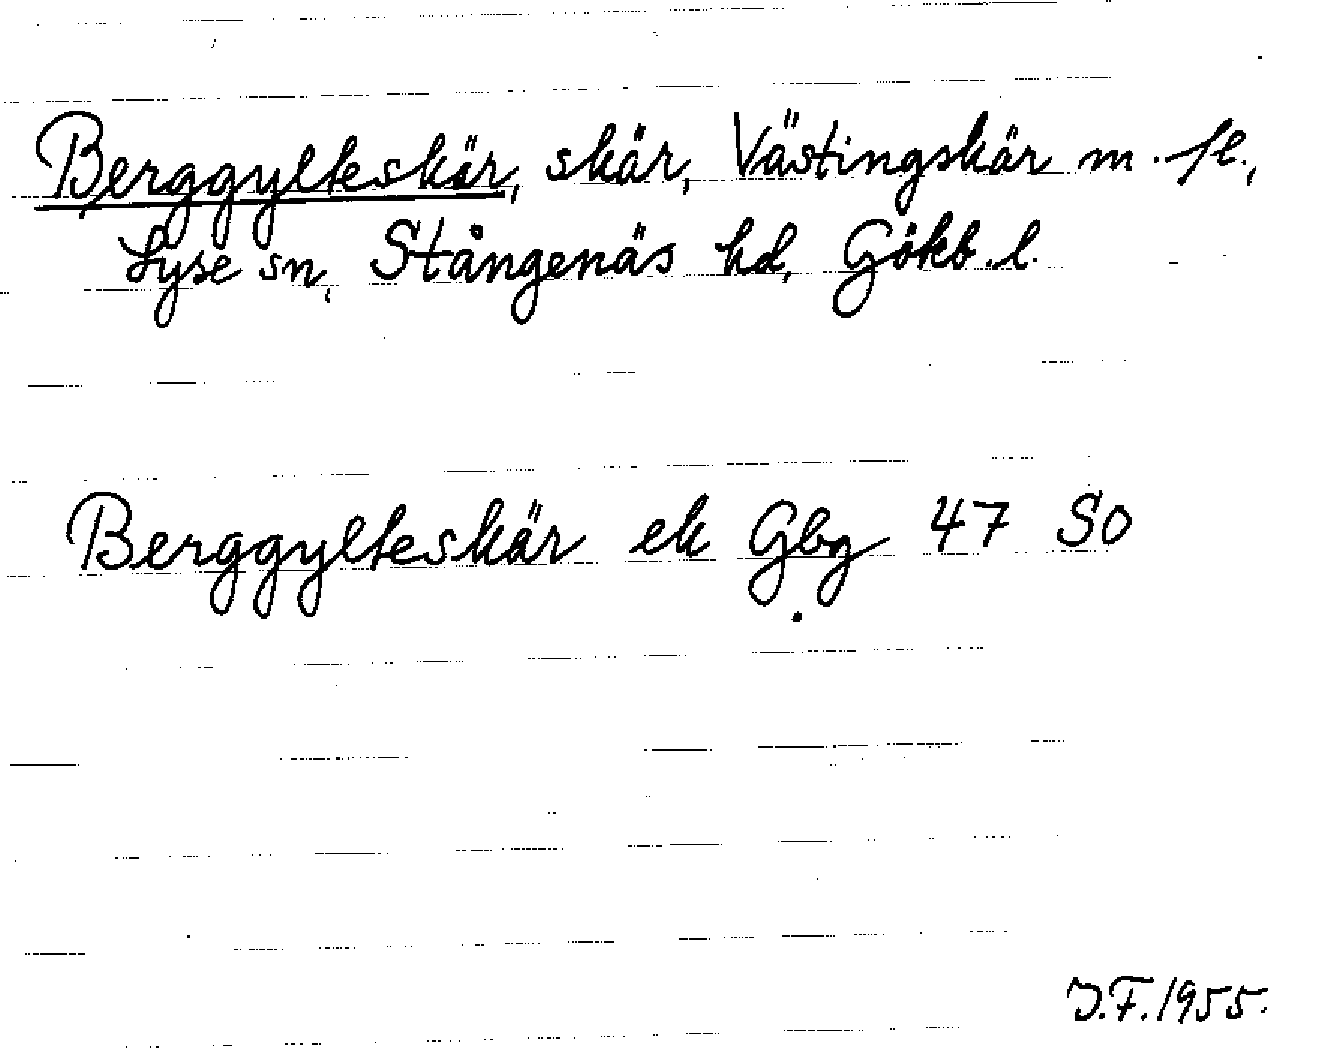 Berggylteskär, skär, Västingskär m. fl.,
Lyse sn, Stångenäs hd, Gökb. l.
Berggylteskär ek Gbg 47 SO
J.F. 1955.